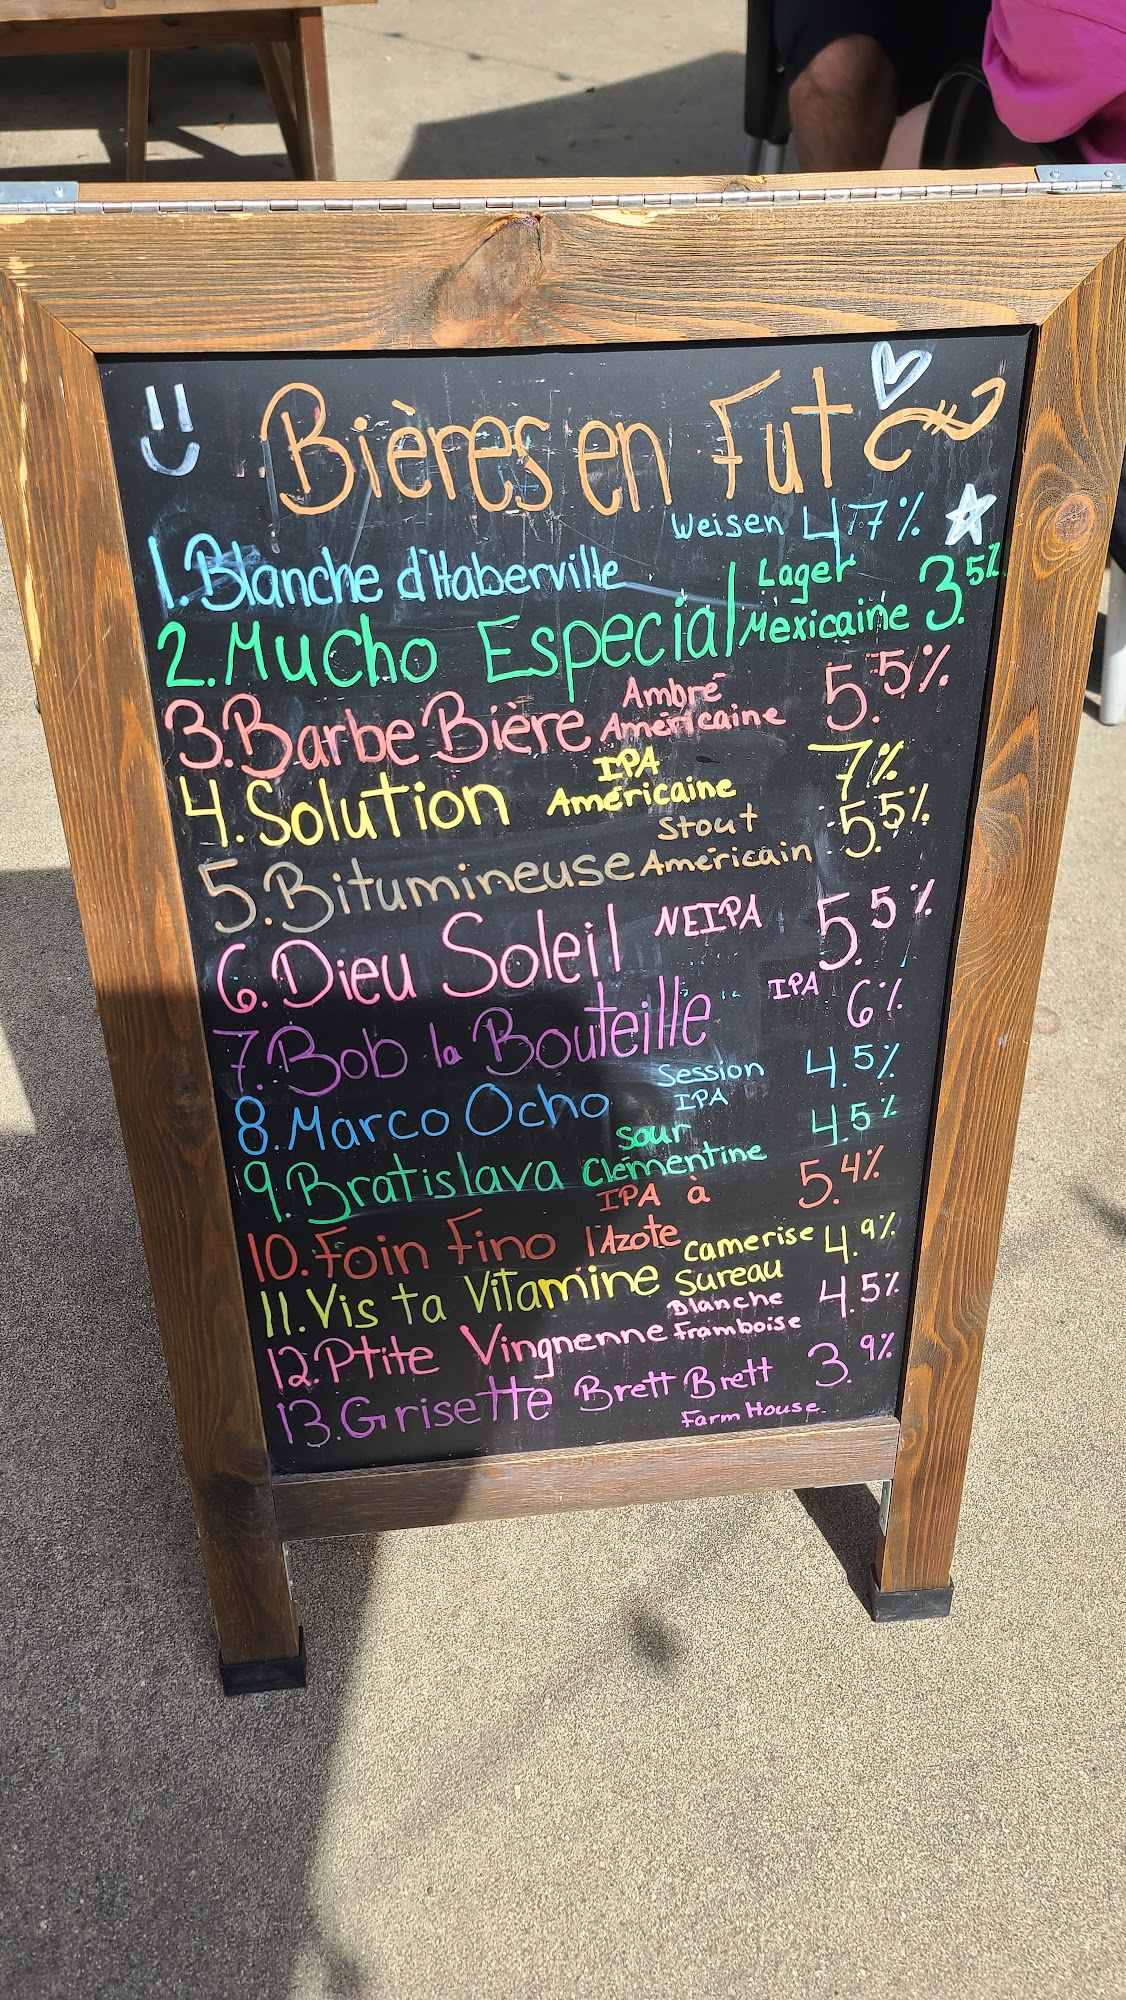 Bières en Fut
1. Blanche d'Haberville Weisen 4.7%
2. Mucho Especial Lager Mexicaine 3.5%
3. Barbe Bière Ambré Américaine 5.5%
4. Solution IPA Américaine 7%
5. Bitumineuse Stout Américain 5.5%
6. Dieu Soleil NEIPA 5.5%
7. Bob la Bouteille IPA 6%
8. Marco Ocho Session IPA 4.5%
9. Bratislava Sour Clémentine 4.5%
10. Foin Fino IPA à l'Azote 5.4%
11. Vis ta Vitamine Camerise Sureau 4.9%
12. Ptite Vingnenne Blanche Framboise 4.5%
13. Grisette Brett Brett Farm House 3.9%